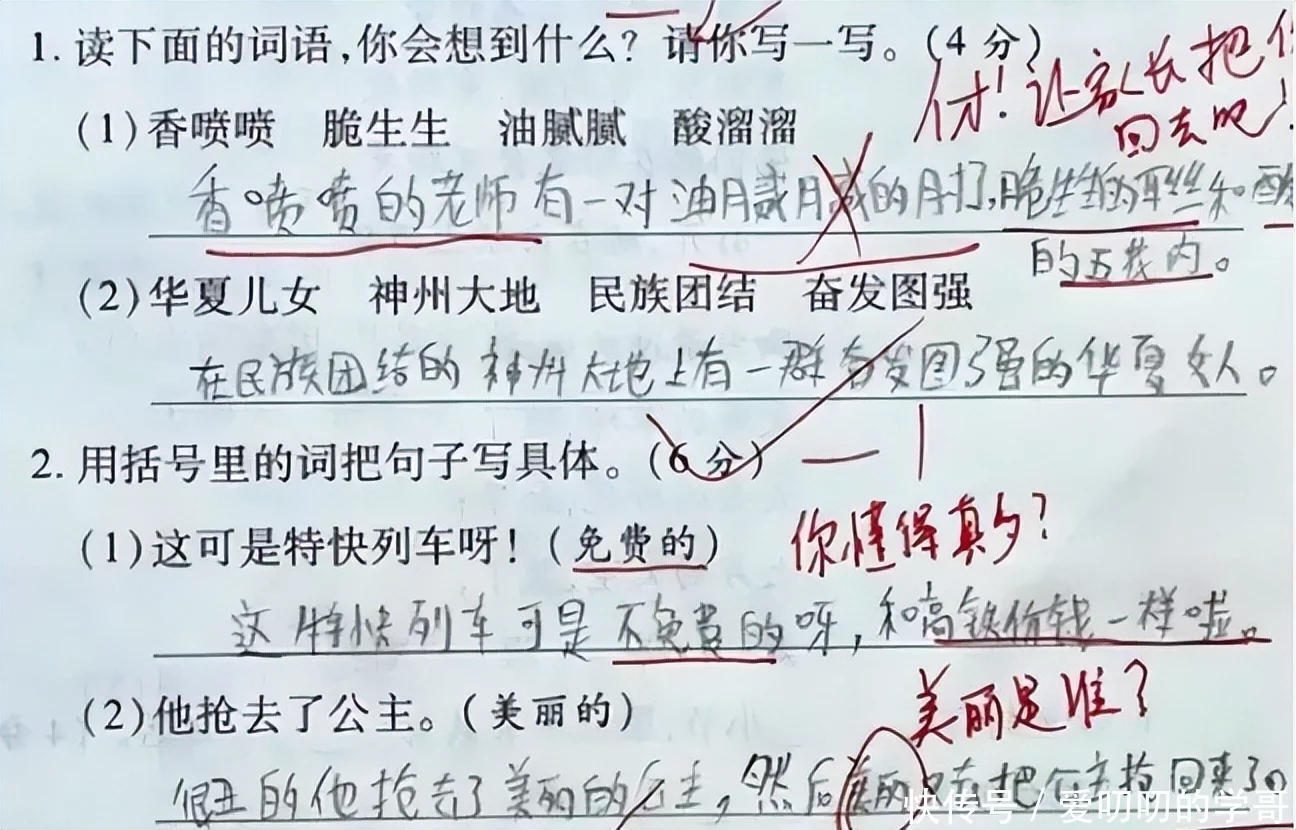 1. 读下面的词语,你会想到什么?请你写一写。(4 分)
才!让家长把
回去吧!
(1)香喷喷 脆生生 油腻腻 酸溜溜
香喷喷的老师有一对油腻腻的,脆生生的耳丝和酸
的五花肉。
(2)华夏儿女 神州大地 民族团结 奋发图强
在民族团结的神州大地上有一群奋发图强的华夏女人。
2. 用括号里的词把句子写具体。(6 分)
(1)这可是特快列车呀!(免费的)
你懂得真多?
这特快列车可是不免费的呀,和高铁价钱一样啦。
(2)他抢去了公主。(美丽的)
美丽是谁?
很丑的他抢去了美丽的公主,然后美丽又把公主抢回来了。
快传号 / 爱叨叨的学哥